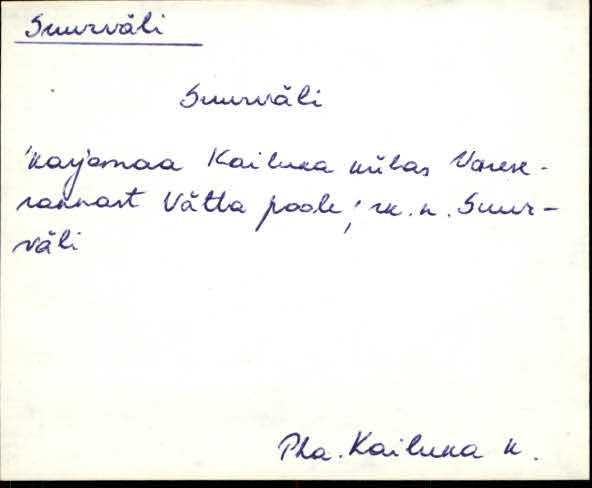 Suurväli
Suurväli
'karjamaa Kailuka külas Varese-
rannast Vätta poole'; rk. n. Suur-
väli
Pha. Kailuka k.